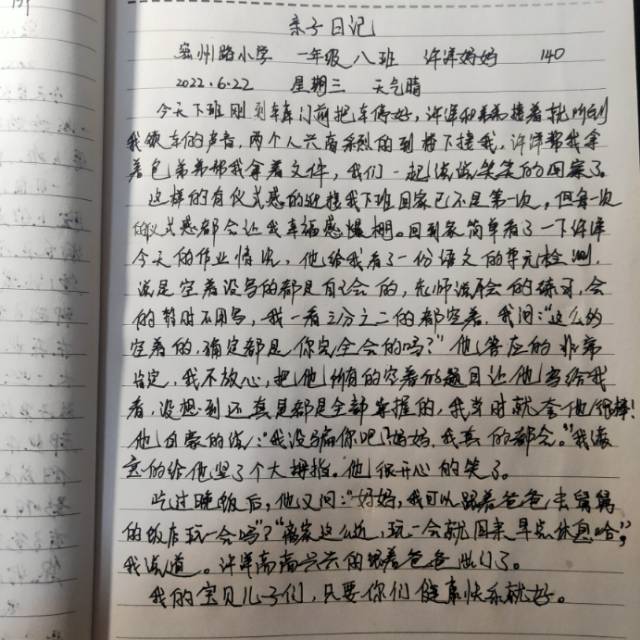 亲子日记
密州路小学 一年级八班 许洋妈妈 140
2022.6.22 星期三 天气晴
今天下班刚到车库门前把车停好,许洋和弟弟接着就听到
我锁车的声音,两个人兴高采烈的到楼下接我,许洋帮我拿
着包弟弟帮我拿着文件,我们一起说说笑笑的回家了。
这样的有仪式感的迎接我下班回家已不是第一次,但每一次
的仪式感都会让我幸福感爆棚。回到家简单看了一下许洋
今天的作业情况,他给我看了一份语文的单元检测,
说是空着没写的都是自己会的,老师说不会的练习,会
的暂时不用写,我一看三分之二的都空着,我问:“这么多
空着的,确定都是你完全会的吗?”他答应的非常
肯定,我不放心,把他所有的空着的题目让他写给我
看,没想到还真是都是全部掌握的,我当时就夸他很棒!
他自豪的说:“我没骗你吧妈妈,我真的都会。”我满
意的给他竖了个大拇指。他很开心的笑了。
吃过晚饭后,他又问:“妈妈,我可以跟着爸爸去舅舅
的饭店玩一会吗”?“离家这么近,玩一会就回来早点休息哈”,
我说道。许洋高高兴兴的跟着爸爸出门了。
我的宝贝儿子们,只要你们健康快乐就好。